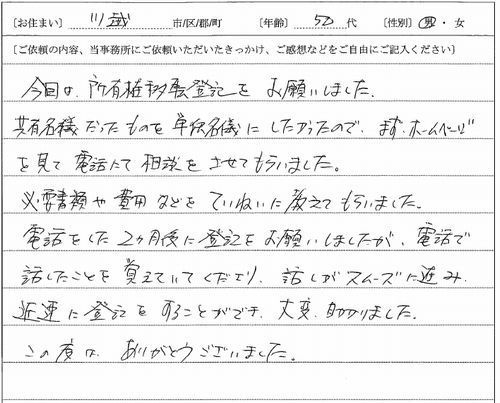 [お住まい] 川越 市/区/郡/町 [年齢] 50 代 [性別] 男・女
[ご依頼の内容、当事務所にご依頼いただいたきっかけ、ご感想などをご自由にご記入ください]
今回は、所有権移転登記をお願いしました。
共有名様だったものを単位名様にしたかったので、まず、ホームページ
を見て電話にて相談をさせてもらいました。
必要書類や費用などをていねいに教えてもらいました。
電話をした2ヶ月後に登記をお願いしましたが、電話で
話したことを覚えていてくださり、話しがスムーズに進み、
迅速に登記をすることができ、大変、助かりました。
この度は、ありがとうございました。